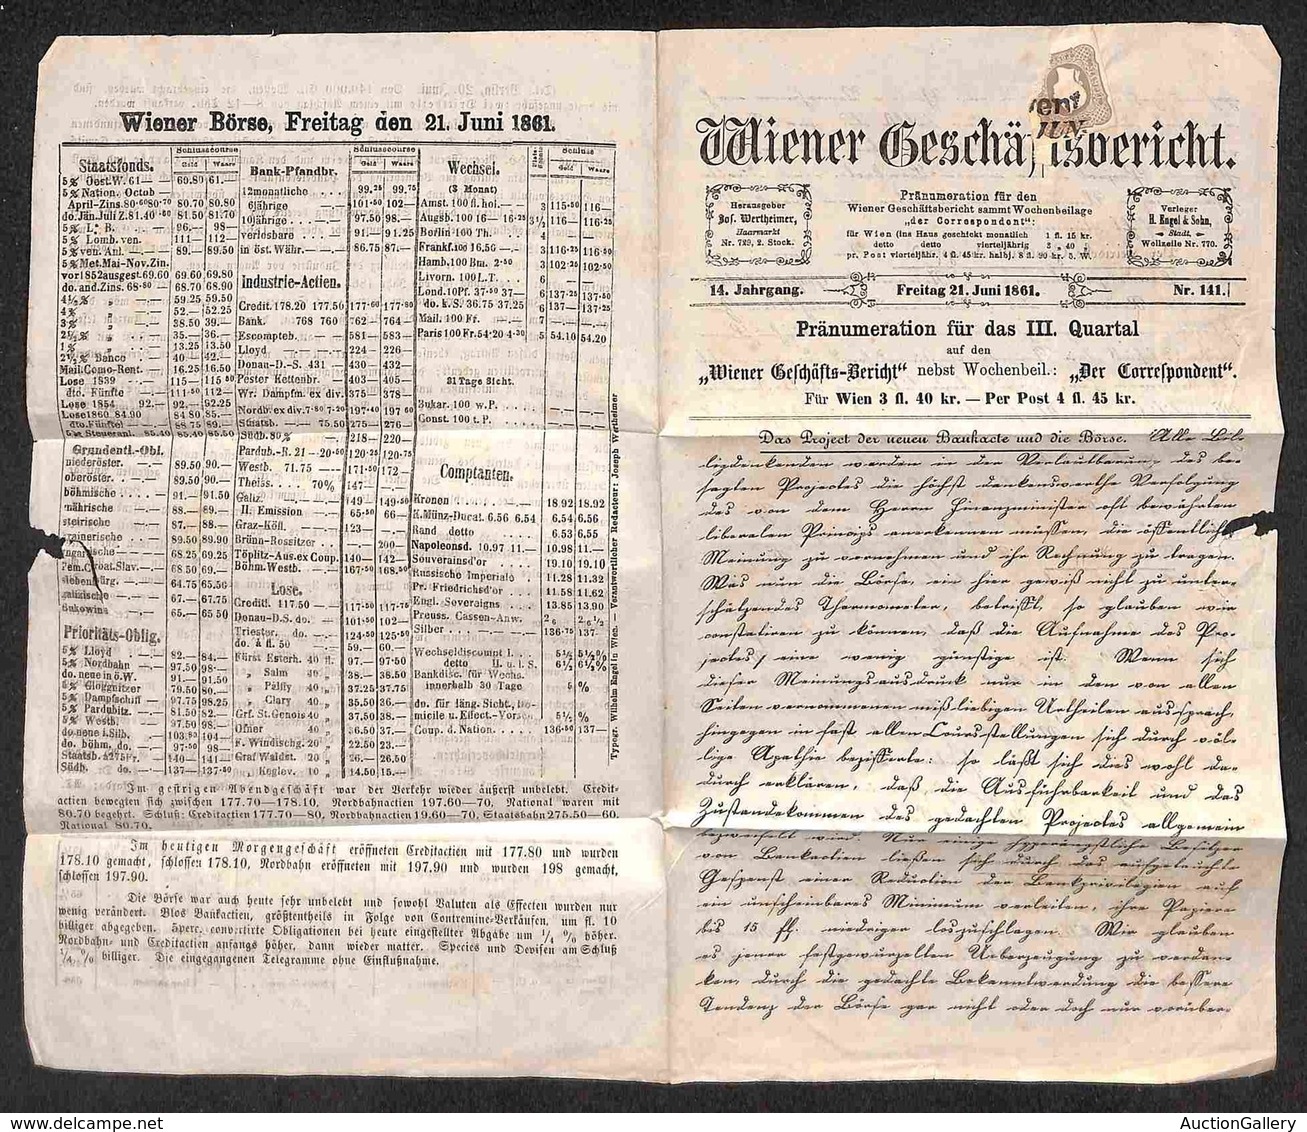 Wiener Börse, Freitag den 21. Juni 1861.
Staatsfonds.
Schlusscourse
Geld Waare
5% Oest.W. 61— 69.80 61.—
5% Nation. Octob
April-Zins. 80·60 80·70 80.70 80.80
do. Jän. Juli Z. 81.40 81.50 81.70
5% L. B. 96.— 98—
5% Lomb. ven. 111— 112—
5% ven. Anl. 89.— 89.50
5% Met. Mai-Nov. Zin.
vor 1852 ausgest. 69.60 69.60 69.80
do. and. Zins. 68·80— 68.70 68.90
4½% „ 59.25 59.50
4% „ 52.— 52.25
3% „ 38.50 39.—
2½% „ 35.— 36.—
1% „ 13.25 13.50
2½% Banco 40— 42.—
Mail. Como-Rent. — 16.25 16.50
Lose 1839 115— 115·50
dto. Fünfte 111·50 112—
Lose 1854 92.— 92.— 92.25
Lose 1860 84.90 84.80 85.—
dto. Fünftel 88.75 89.—
5% Steueranl. 85.40 85.40 85.50
Grundentl.-Obl.
niederöster. 89.50 90.—
oberöster. 89.50 90.—
böhmische 91.— 91.50
mährische 88.— 89.—
steirische 87.— 88.—
89.50 89.90
68.25 69.25
Tem. Croat. Slav. 68.50 69.—
64.75 65.50
67.— 67.75
Bukowina 65.— 65.50
Prioritäts-Oblig.
5% Lloyd 82— 84.—
5% Nordbahn 97.50 98—
do. neue in ö.W. 91.— 91.50
5% Gloggnitzer 79.50 80.—
5% Dampfschiff 97.75 98.25
5% Pardubitz. 81.50 82—
5% Westb. 97.50 98—
do. neue i. Silb. 103·80 104—
do. böhm. do. 97·50 98—
Staatsb. à 275 Fr. 140— 141—
Südb. do. 137— 137·50
Bank-Pfandbr.
Schlusscourse
Geld Waare
12monatliche 99.25 99.75
6jährige 101·50 102—
10jährige 97.50 98.—
verlosbare 91.— 91.25
in öst. Währ. 86.75 87.—
Industrie-Actien.
Credit. 178.20 177.50 177·60 177·80
Bank. 768 760 762— 764—
Escompteb. 581— 583—
Lloyd 224 226—
Donau-D.-S. 431 430— 432—
Pester Kettenbr. 403— 405—
Wr. Dampfm. ex div 375— 378—
Nordb. ex div. 7·80 7·20 197·40 197 60
Staatsb. 75.50 275— 276—
Südb. 80% 218— 220—
Pardub.-R. 21 —20·50 120·25 120·75
Westb. 71.75 171·50 172—
Theiss. 70% 147—
Galiz. 149— 149·50
II. Emission 65·50 66—
Graz-Köfl. 123—
Brünn-Rossitzer 200—
Töplitz-Aus. ex Coup. 140— 142—
Böhm. Westb. 167·50 168·50
Lose.
Creditl. 117.50 117·50 117·75
Donau-D.S. do. 101·50 102—
Triester, do. 124·50 125·50
do. à fl. 50 59.— 60.—
Fürst Esterh. 40 fl. 97.— 97·50
„ Salm 40 „ 38.— 38.50
„ Pálffy 40 „ 37.25 37.75
„ Clary 40 „ 35.50 36.—
Grf. St. Genois 40 „ 37.50 38.—
Ofner 40 „ 36.50 37.—
F. Windischg. 20 „ 22.50 23.—
Graf Waldst. 20 „ 26.— 26.50
„ Keglev. 10 „ 14.50 15.—
Wechsel.
(3 Monat)
Schluss
Geld Waare
Amst. 100 fl. hol. 3 115·50 116—
Augsb. 100 16—16·25 3½ 116— 116·25
Berlin 100 Th. 4
Frankf. 100 16.50— 3 116·25 116·50
Hamb. 100 Bm. 2·50 3 102·25 102·50
Livorn. 100 L.T. 6
Lond. 10 Pf. 37·50 37— 6 137·25 137·50
do. k. S. 36.75 37.25 6 137— 137·25
Mail. 100 Fr. 7
Paris 100 Fr. 54·20 4·30 5 54.10 54.20
31 Tage Sicht.
Bukar. 100 w. P.
Const. 100 t. P.
Comptanten.
Kronen 18.92 18.92
K. Münz-Ducat. 6.56 6.54 6.54 6.56
Rand detto 6.53 6.55
Napoleonsd. 10.97 11.— 10.98 11.—
Souverainsd'or 19.10 19.10
Russische Imperiale 11.28 11.32
Pr. Friedrichsd'or 11.58 11.62
Engl. Sovereigns 13.85 13.90
Preuss. Cassen-Anw. 2 6 2 6½
Silber 136·75 137—
Wechseldiscount I. 5½ 5½%
detto II. u. I. S. 6½ 6½%
Bankdisc. für Wechs.
innerhalb 30 Tage 5 %
do. für läng. Sicht., Do-
micile u. Effect.-Vorsch. 5½ %
Coup. d. Nation. 136·50 137—
Typogr. Wilhelm Engel in Wien. Verantwortlicher Redacteur: Joseph Wertheimer
Im gestrigen Abendgeschäft war der Verkehr wieder äußerst unbelebt. Credit-
actien bewegten sich zwischen 177.70—178.10, Nordbahnactien 197.60—70, National waren mit
80.70 begehrt. Schluß: Creditactien 177.70—80, Nordbahnactien 19.60—70, Staatsbahn 275.50—60.
National 80.70.
Im heutigen Morgengeschäft eröffneten Creditactien mit 177.80 und wurden
178.10 gemacht, schlossen 178.10, Nordbahn eröffneten mit 197.90 und wurden 198 gemacht,
schlossen 197.90.
Die Börse war auch heute sehr unbelebt und sowohl Valuten als Effecten wurden nur
wenig verändert. Blos Bankactien, größtentheils in Folge von Contremine-Verkäufen, um fl. 10
billiger abgegeben. 5perc. convertirte Obligationen bei heute eingestellter Abgabe um ¼ % höher.
Nordbahn- und Creditactien anfangs höher, dann wieder matter. Species und Devisen am Schluß
¼ % billiger. Die eingegangenen Telegramme ohne Einflußnahme.
JUN
Wiener Geschäftsbericht.
Herausgeber
Jos. Wertheimer,
Haarmarkt
Nr. 729, 2. Stock.
Pränumeration für den
Wiener Geschäftsbericht sammt Wochenbeilage
„der Correspondent“:
für Wien (ins Haus geschickt monatlich 1 fl. 15 kr.
detto detto vierteljährig 3 „ 40 „
pr. Post vierteljähr. 4 fl. 45 kr. halbj. 8 fl. 90 kr. ö. W.
Verleger
H. Engel & Sohn,
Stadt,
Wollzeile Nr. 770.
14. Jahrgang. Freitag 21. Juni 1861. Nr. 141.
Pränumeration für das III. Quartal
auf den
„Wiener Geschäfts-Bericht“ nebst Wochenbeil.: „Der Correspondent“.
Für Wien 3 fl. 40 kr. — Per Post 4 fl. 45 kr.
Das Project der neuen Bankacte und die Börse. Alle Bil-
ligdenkenden werden in der Verlautbarung des be-
sagten Projectes die höchst dankenswerthe Verfolgung
des von dem Herrn Finanzminister oft bewährten
liberalen Princips anerkennen müssen, die öffentliche
Meinung zu vernehmen und ihr Rechnung zu tragen.
Was nun die Börse, ein hier gewiß nicht zu unter-
schätzendes Thermometer, betrifft, so glauben wir
constatiren zu können, daß die Aufnahme des Pro-
jectes, eine wenig günstige ist. Wenn sich
dieser Meinungsausdruck nur in den von allen
Seiten vernommenen mißliebigen Urtheilen aussprach,
hingegen in fast allen Coursstellungen sich durch völ-
lige Apathie bezifferte: so läßt sich dies wohl da-
durch erklären, daß die Ausführbarkeit und das
Zustandekommen des gedachten Projectes allgemein
bezweifelt wird. Nur einige hyperängstliche Besitzer
von Bankactien ließen sich durch das aufgetauchte
Gespenst einer Reduction der Bankprivilegien auf
ein unscheinbares Minimum verleiten, ihre Papiere
bis 15 fl. niedriger loszuschlagen. Wir glauben
es jener festgewurzelten Ueberzeugung zu verdan-
ken, durch die gedachte Bekanntwerdung die bessere
Tendenz der Börse gar nicht oder doch nur vorüber-
AuctionGallery